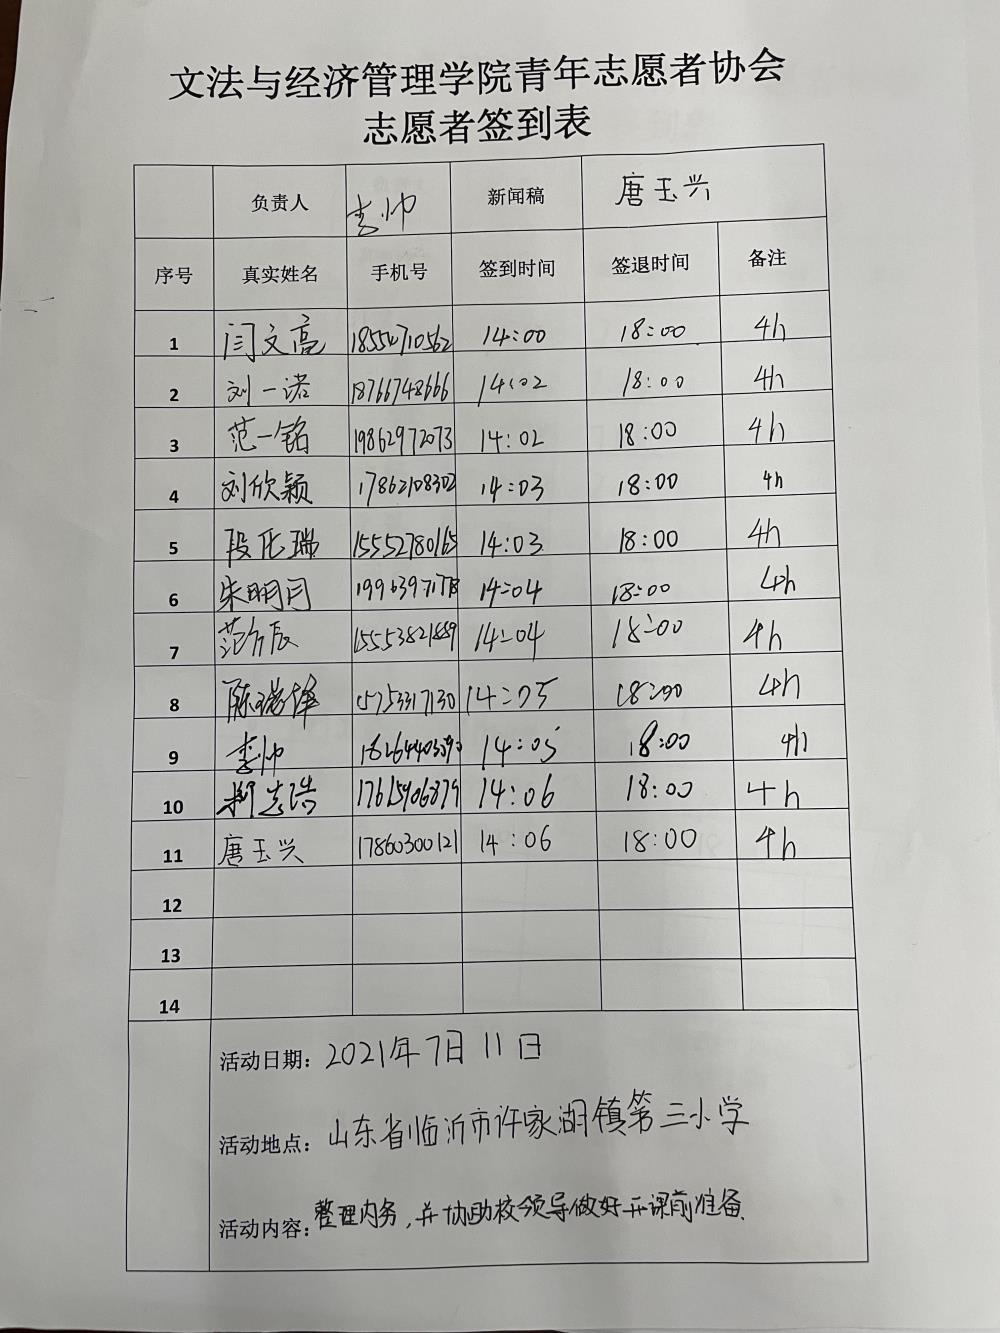 文法与经济管理学院青年志愿者协会
志愿者签到表
负责人 李帅 新闻稿 唐玉兴
序号 真实姓名 手机号 签到时间 签退时间 备注
1 闫文高 18554710562 14:00 18:00 4h
2 刘一诺 18766748666 14:02 18:00 4h
3 范一铭 19862972073 14:02 18:00 4h
4 刘欣颖 17862108302 14:03 18:00 4h
5 段化瑞 15552780165 14:03 18:00 4h
6 朱明月 14:04 18:00 4h
7 15553821889 14:04 18:00 4h
8 陈瑞锋 14:05 18:00 4h
9 李帅 14:05 18:00 4h
10 17615906879 14:06 18:00 4h
11 唐玉兴 17860300121 14:06 18:00 4h
12
13
14
活动日期: 2021年7日11日
活动地点: 山东省临沂市许家湖镇第三小学
活动内容: 整理内务,并协助校领导做好开课前准备